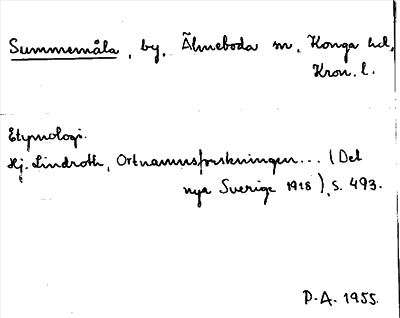 Summemåla, by, Älmeboda sn, Konga hd,
Kron. l.
Etymologi.
Hj. Lindroth, Ortnamnsforskningen... (Det
nya Sverige 1918), s. 493.
P-A. 1955.